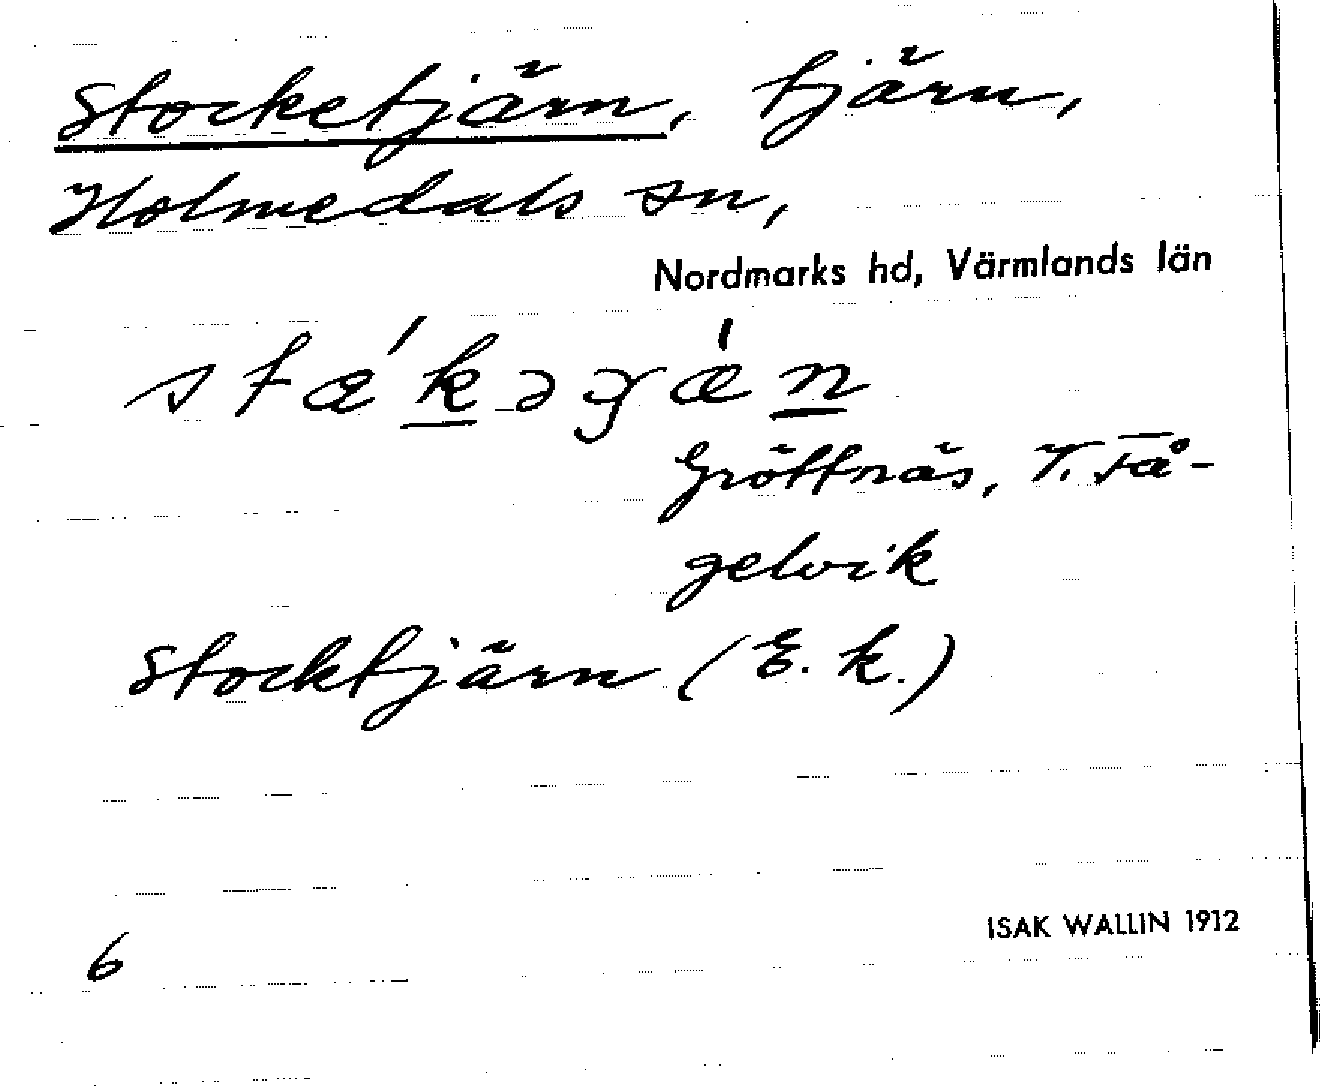 Stocketjärn, tjärn,
Holmedals sn,
Nordmarks hd, Värmlands län
stǽkəɟǽn
Gröttnäs, V. Få-
gelvik
Stocktjärn (E. k.)
6
ISAK WALLIN 1912